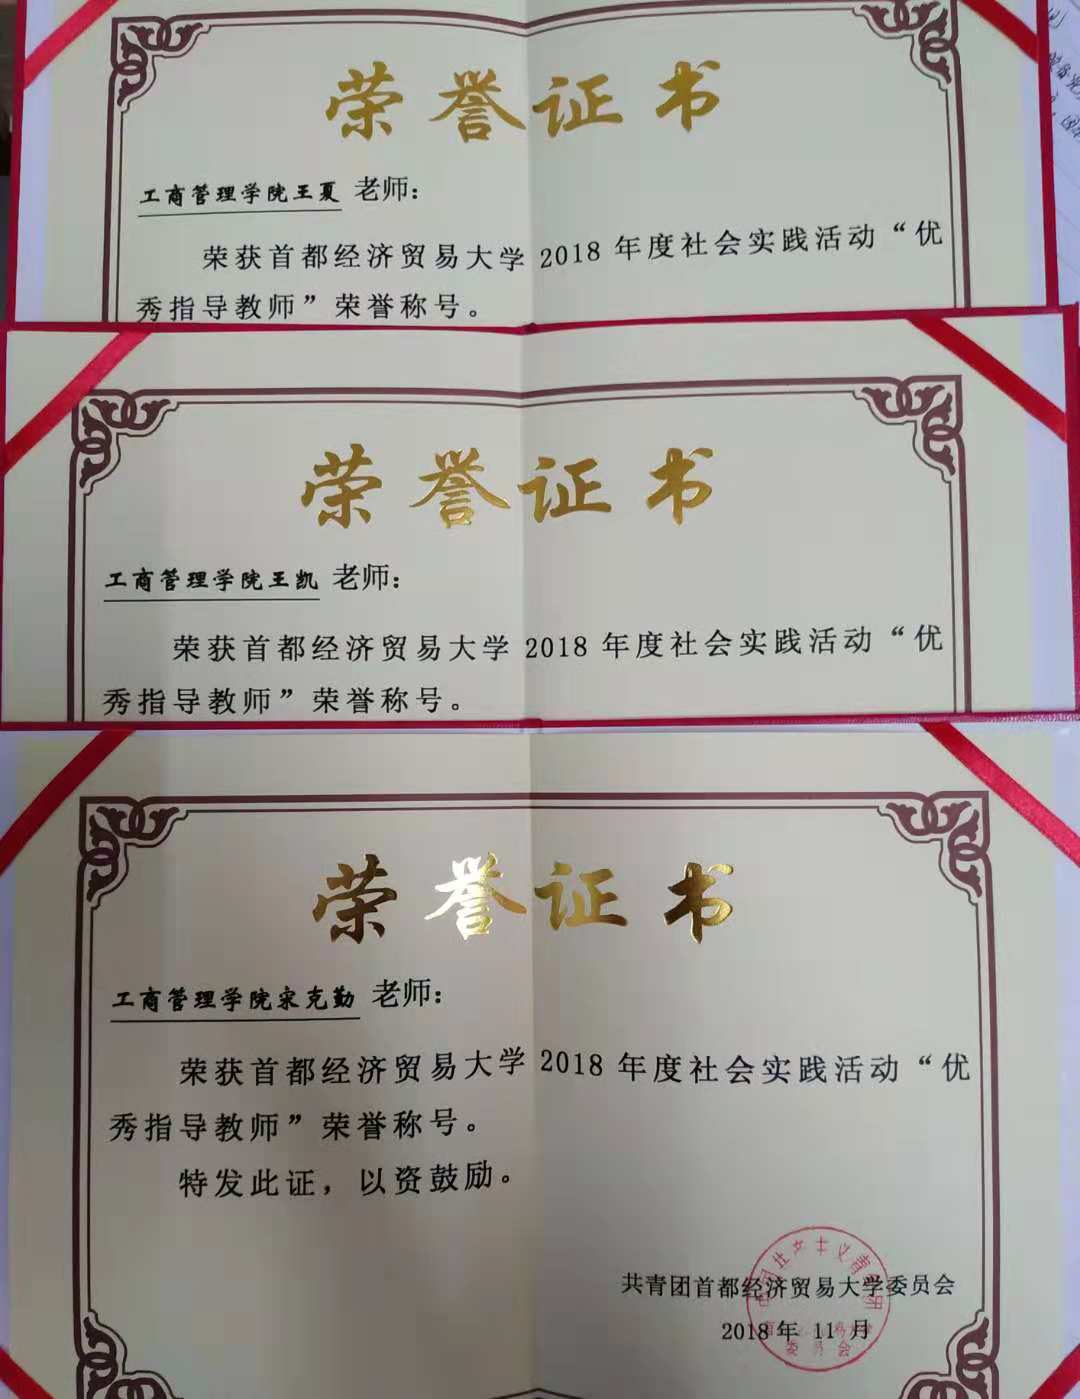 荣誉证书
工商管理学院王夏 老师：
荣获首都经济贸易大学 2018 年度社会实践活动“优
秀指导教师”荣誉称号。
荣誉证书
工商管理学院王凯 老师：
荣获首都经济贸易大学 2018 年度社会实践活动“优
秀指导教师”荣誉称号。
荣誉证书
工商管理学院宋克勤 老师：
荣获首都经济贸易大学 2018 年度社会实践活动“优
秀指导教师”荣誉称号。
特发此证，以资鼓励。
共青团首都经济贸易大学委员会
2018 年 11 月
委员会